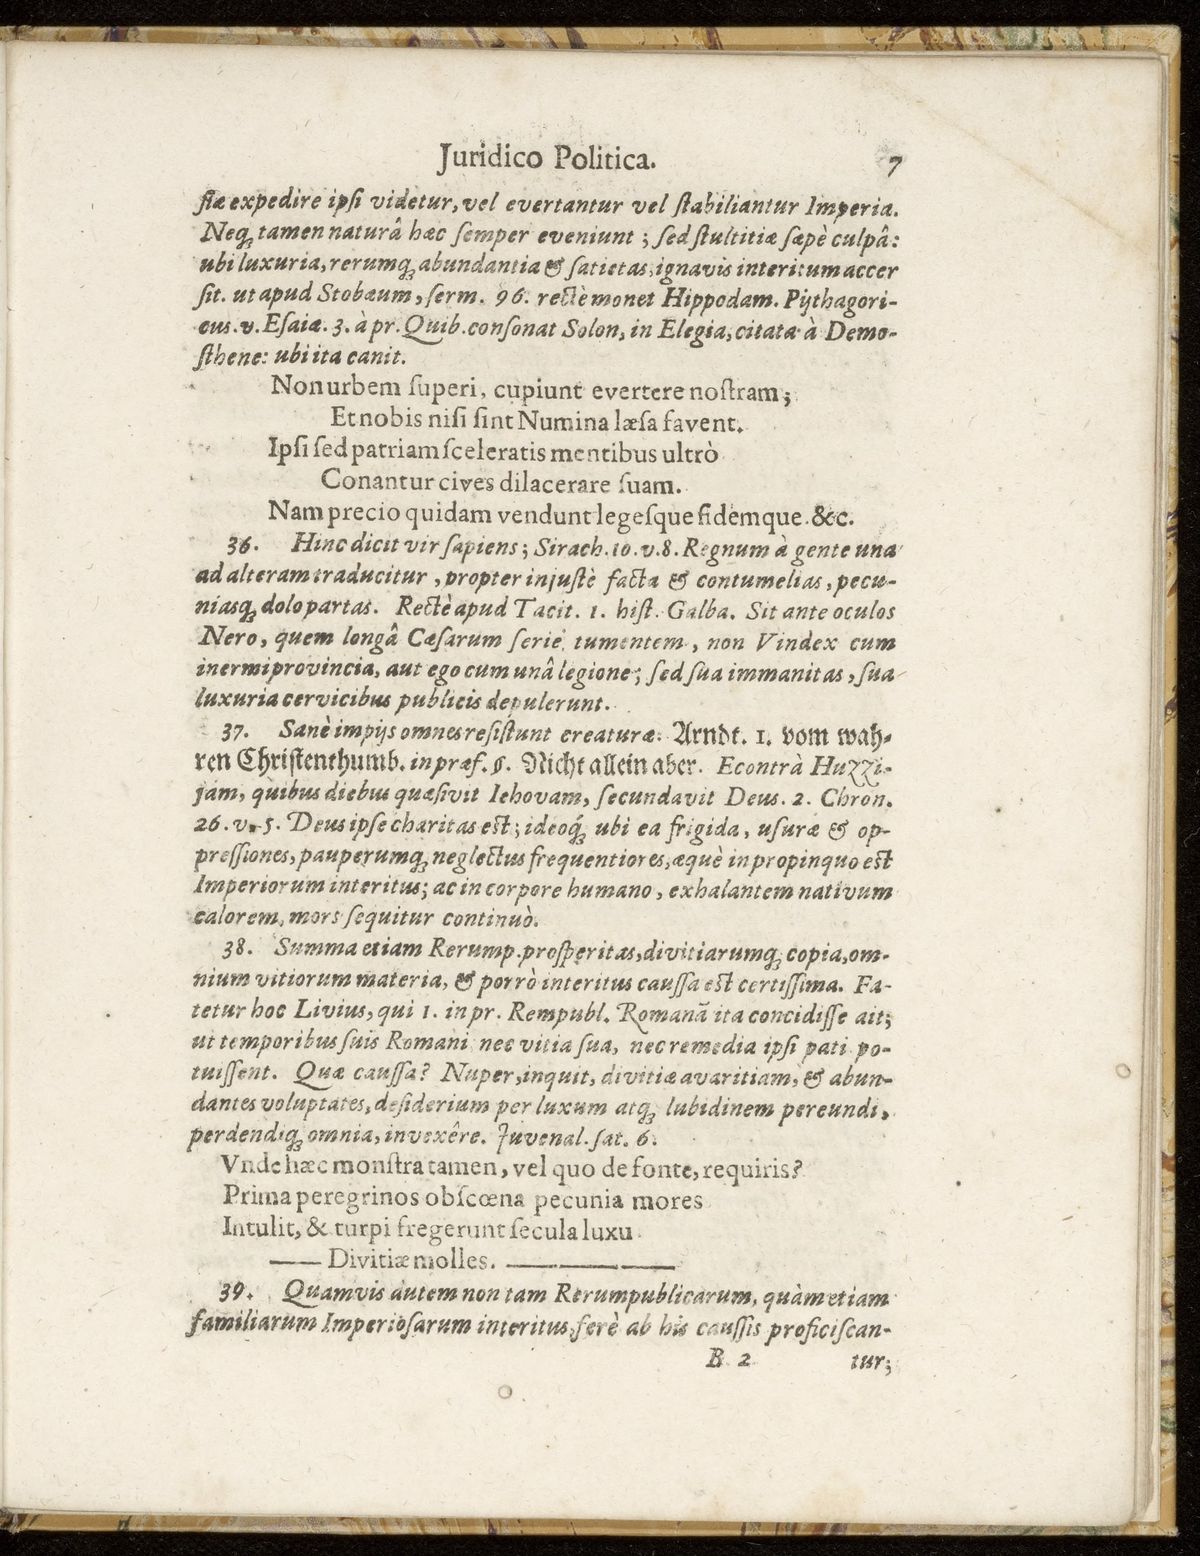 Juridico Politica. 7
ſtæ expedire ipſi videtur, vel evertantur vel ſtabiliantur Imperia.
Neq; tamen naturâ hæc ſemper eveniunt; ſed ſtultitiæ ſæpè culpâ:
ubi luxuria, rerumq; abundantia & ſatietas, ignavis interitum accer
ſit. ut apud Stobæum, ſerm. 96. rectè monet Hippodam. Pythagori-
cus. v. Eſaiæ. 3. à pr. Quib. conſonat Solon, in Elegia, citata à Demo-
ſthene: ubi ita canit.
Non urbem ſuperi, cupiunt evertere noſtram;
Et nobis niſi ſint Numina læſa favent.
Ipſi ſed patriam ſceleratis mentibus ultrò
Conantur cives dilacerare ſuam.
Nam precio quidam vendunt legeſque fidemque. &c.
36. Hinc dicit vir ſapiens; Sirach. 10. v. 8. Regnum à gente una
ad alteram traducitur, propter injuſtè facta & contumelias, pecu-
niasq; dolo partas. Rectè apud Tacit. 1. hiſt. Galba. Sit ante oculos
Nero, quem longâ Cæſarum ſerie tumentem, non Vindex cum
inermi provincia, aut ego cum unâ legione; ſed ſua immanitas, ſua
luxuria cervicibus publicis depulerunt.
37. Sanè impijs omnes reſiſtunt creaturæ. Arndt. 1. vom wah-
ren Chriſtenthumb. in præf. §. Nicht allein aber. Econtrà Huzzi-
jam, quibus diebus quæſivit Iehovam, ſecundavit Deus. 2. Chron.
26. v. 5. Deus ipſe charitas eſt; ideoq́; ubi ea frigida, uſuræ & op-
preſſiones, pauperumq; neglectus frequentiores, æquè in propinquo eſt
Imperiorum interitus; ac in corpore humano, exhalantem nativum
calorem, mors ſequitur continuò.
38. Summa etiam Rerump. proſperitas, divitiarumq; copia, om-
nium vitiorum materia, & porrò interitus cauſſa eſt certiſſima. Fa-
tetur hoc Livius, qui 1. in pr. Rempubl. Romanã ita concidiſſe ait;
ut temporibus ſuis Romani nec vitia ſua, nec remedia ipſi pati po-
tuiſſent. Quæ cauſſa? Nuper, inquit, divitiæ avaritiam, & abun-
dantes voluptates, deſiderium per luxum atq; lubidinem pereundi,
perdendiq; omnia, invexêre. Juvenal. ſat. 6.
Vnde hæc monſtra tamen, vel quo de fonte, requiris?
Prima peregrinos obſcœna pecunia mores
Intulit, & turpi fregerunt ſecula luxu
—— Divitiæ molles. ——————
39. Quamvis autem non tam Rerumpublicarum, quàm etiam
familiarum Imperioſarum interitus, ferè ab his cauſſis proficiſcan-
B 2 tur;